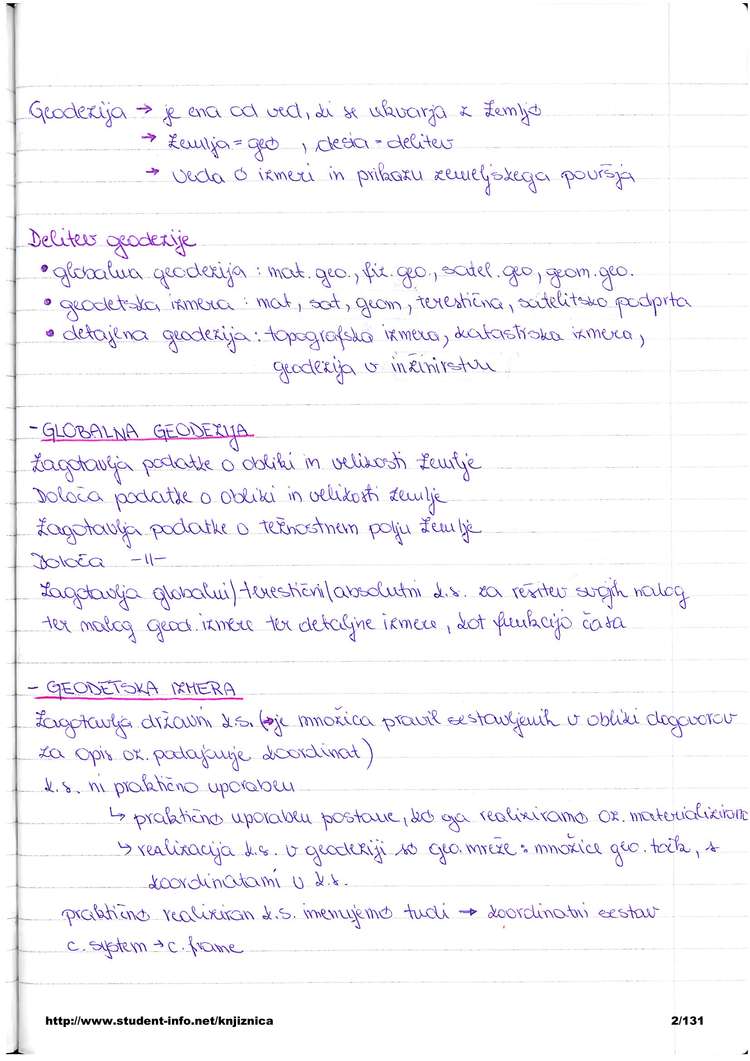 Geodezija → je ena od ved, ki se ukvarja z Zemljo
→ Zemlja = geo , desia = delitev
→ veda o izmeri in prikazu zemeljskega površja
Delitev geodezije
• globalna geodezija : mat. geo., fiz. geo., satel. geo, geom. geo.
• geodetska izmera : mat, sat, geom, terestična, satelitsko podprta
• detajlna geodezija : topografska izmera, katastrska izmera,
geodezija v inžinirstvu
- GLOBALNA GEODEZIJA
Zagotavlja podatke o obliki in velikosti Zemlje
Določa podatke o obliki in velikosti zemlje
Zagotavlja podatke o težnostnem polju Zemlje
Določa -||-
Zagotavlja globalni/terestični/absolutni k.s. za rešitev svojih nalog
ter nalog geod. izmere ter detaljne izmere, kot funkcijo časa
- GEODETSKA IZMERA
Zagotavlja državni k.s. (→je množica pravil sestavljenih v obliki dogovorov
za opis oz. podajanje koordinat)
k.s. ni praktično uporaben
↳ praktično uporaben postane, ko ga realiziramo oz. materializiramo
↳ realizacija k.s. v geodeziji so geo. mreže : množice geo. točk, s
koordinatami v k.s.
praktično realiziran k.s. imenujemo tudi → koordinatni sestav
c. system → c. frame
http://www.student-info.net/knjiznica
2/131